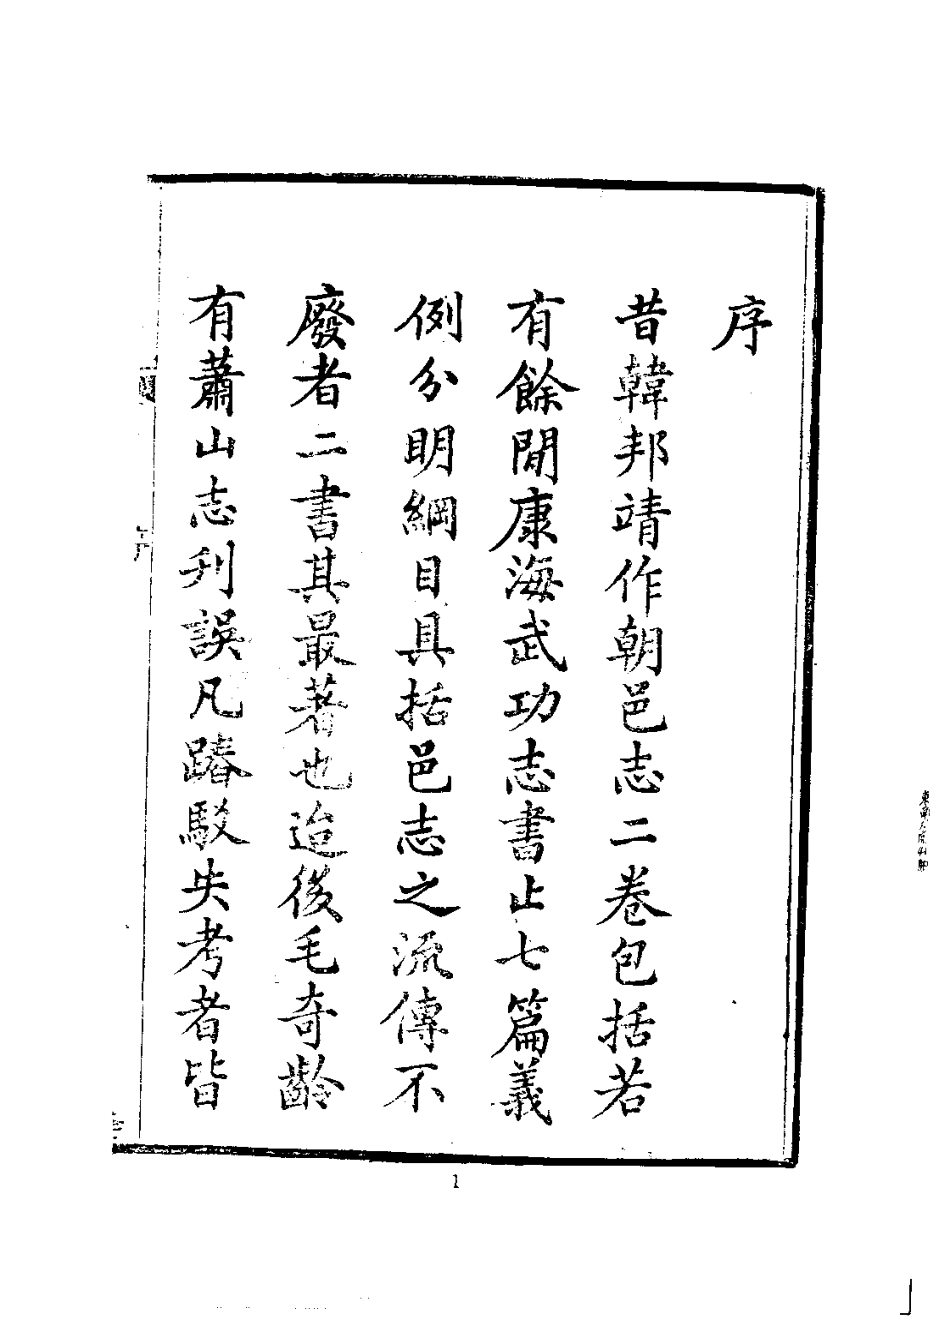 序
昔韓邦靖作朝邑志二卷包括若
有餘閒康海武功志書止七篇義
例分明綱目具括邑志之流傳不
廢者二書其最著也迨後毛奇齡
有蕭山志刋誤凡踳駁失考者皆
序
1